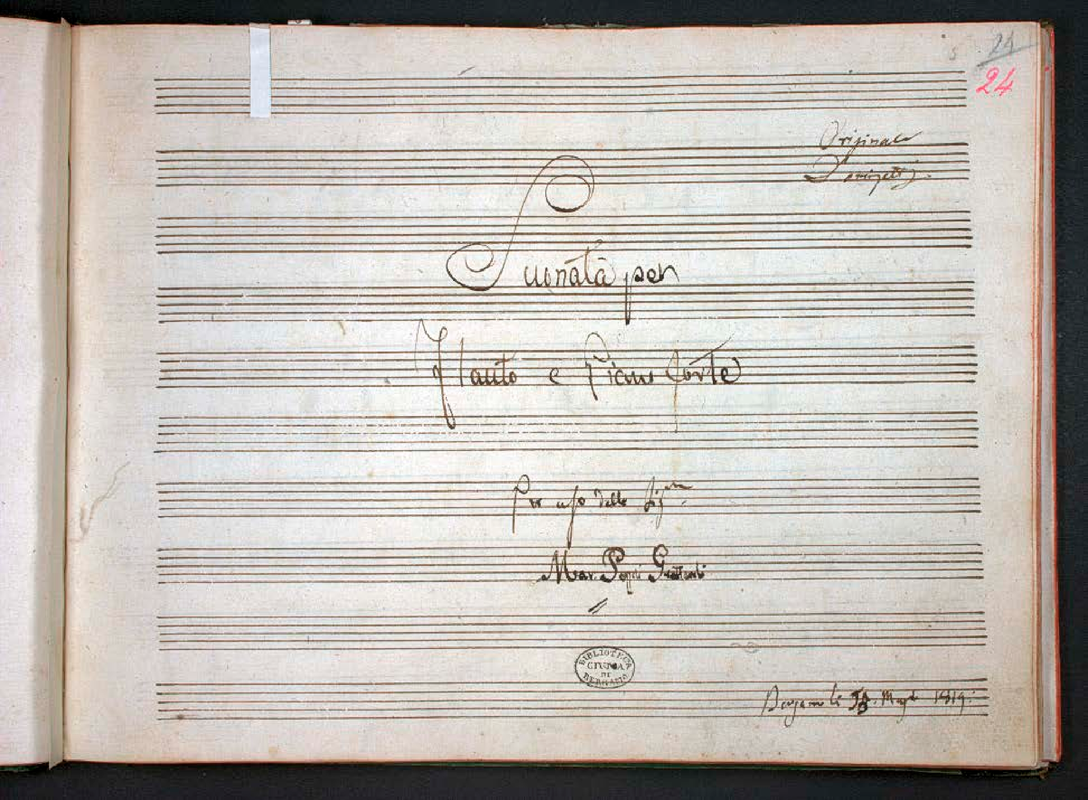 24
24
Originale
Donizetti
Suonata per
Flauto e Piano forte
Per uso della Sig.ra
Mar. Pezzoli Grattaroli
BIBLIOTECA
CIVICA
DI
BERGAMO
Bergamo li Magº 1819.